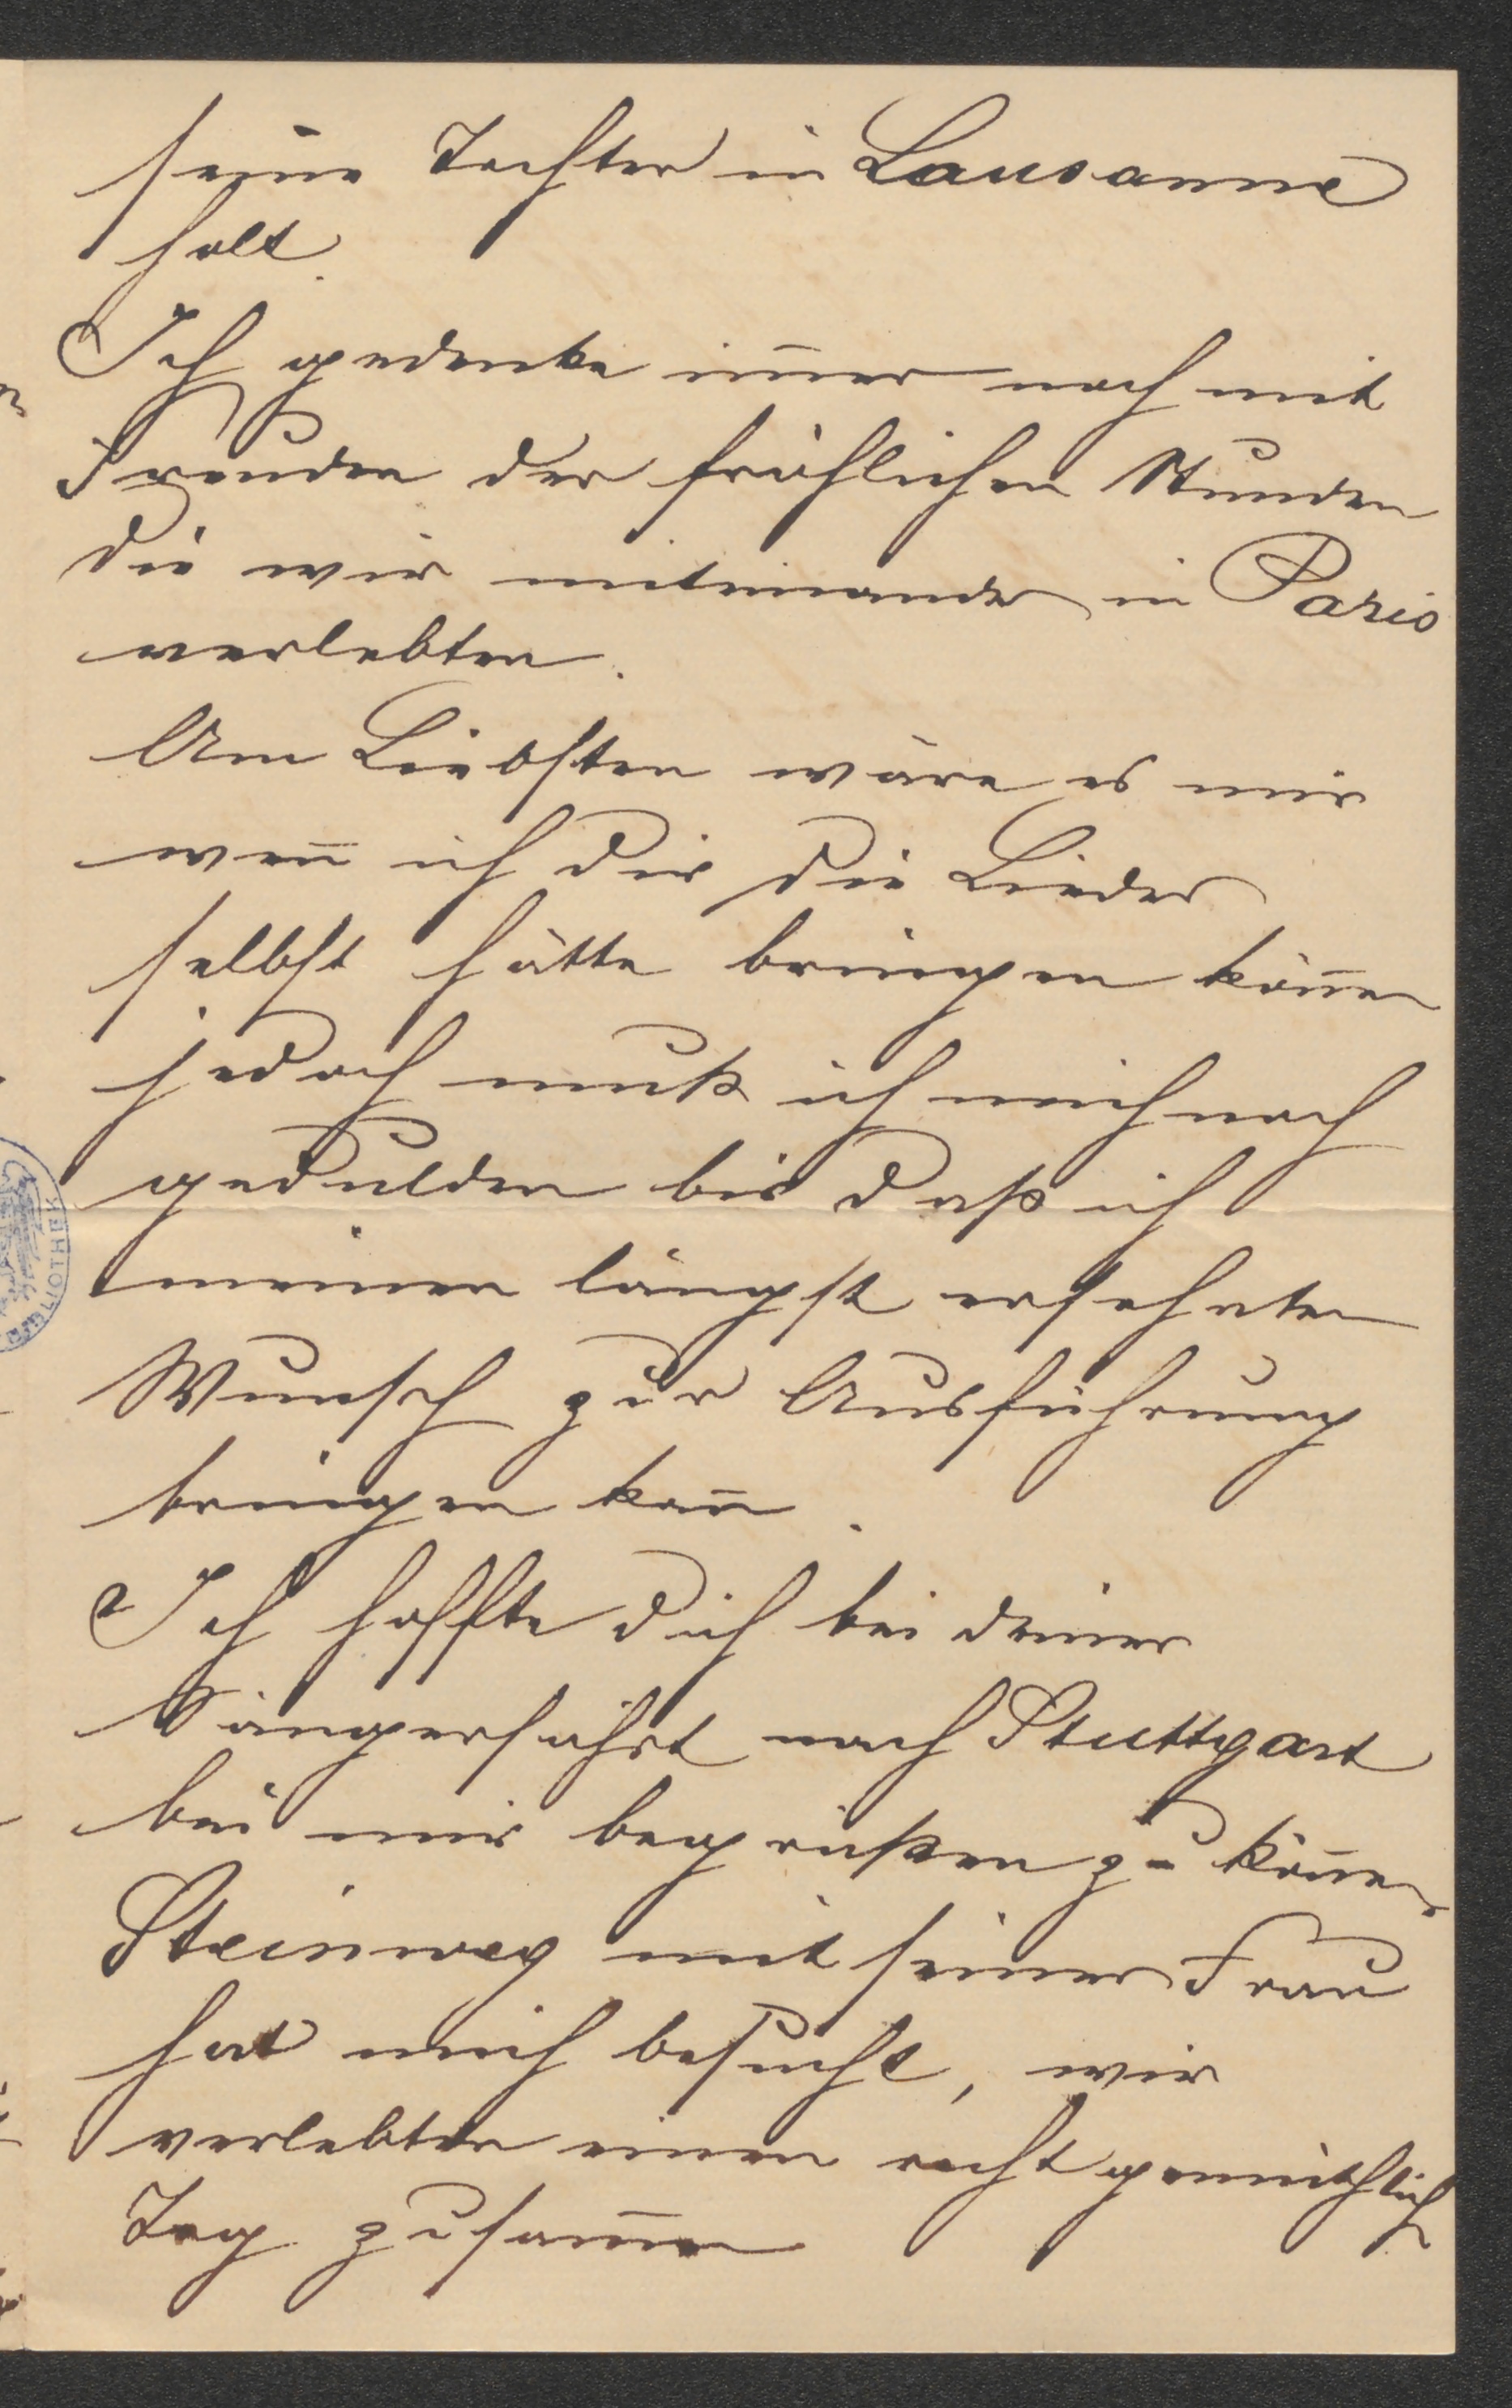 seine Tochter in Lausanne
holt.
Ich gedenke im̅er noch mit
Freuden der fröhlichen Stunden
die wir miteinander in Paris
verlebten.
Am Liebsten wäre es mir
wen̅ ich dir die Lieder
selbst hätte bringen kön̅en
jedoch muß ich mich noch
gedulden bis daß ich
meinen längst ersehnten
Wunsch zur Ausführung
bringen kan̅.
Ich hoffte dich bei deiner
Sängerfahrt nach Stuttgart
bei mir begrüßen zu kön̅en.
Steinway mit seiner Frau
hat mich besucht, wir
verlebten einen recht gemüthlich
Tag zusam̅en